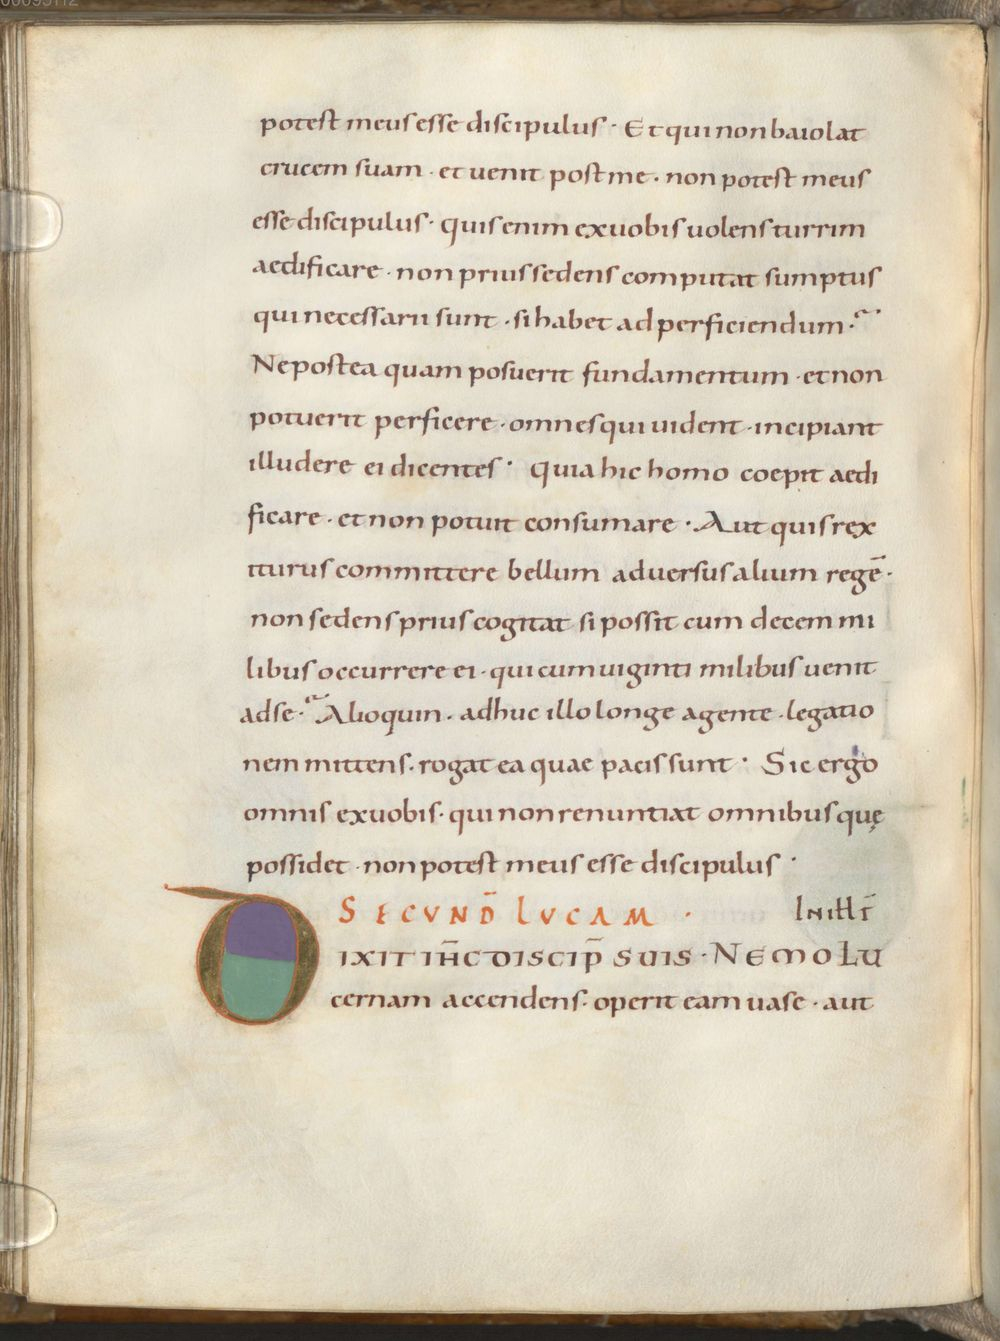 potest meus esse discipulus · Et qui non baiolat
crucem suam · et uenit post me · non potest meus
esse discipulus · quis enim ex uobis uolens turrim
aedificare · non prius sedens computat sumptus
qui necessarii sunt · si habet ad perficiendum ·
Ne postea quam posuerit fundamentum · et non
potuerit perficere · omnes qui uident · incipiant
illudere ei dicentes · quia hic homo coepit aedi
ficare · et non potuit consumare · Aut quis rex
iturus committere bellum aduersus alium regē ·
non sedens prius cogitat si possit cum decem mi
libus occurrere ei · qui cum uiginti milibus uenit
ad se · Alioquin · adhuc illo longe agente · legatio
nem mittens · rogat ea quae pacis sunt · Sic ergo
omnis ex uobis · qui non renuntiat omnibus quę
possidet · non potest meus esse discipulus ·
SECVND̄ LVCAM · In ill t̄
DIXIT IH̄C DISCIP̄ SUIS · NEMO LU
cernam accendens · operit eam uase · aut